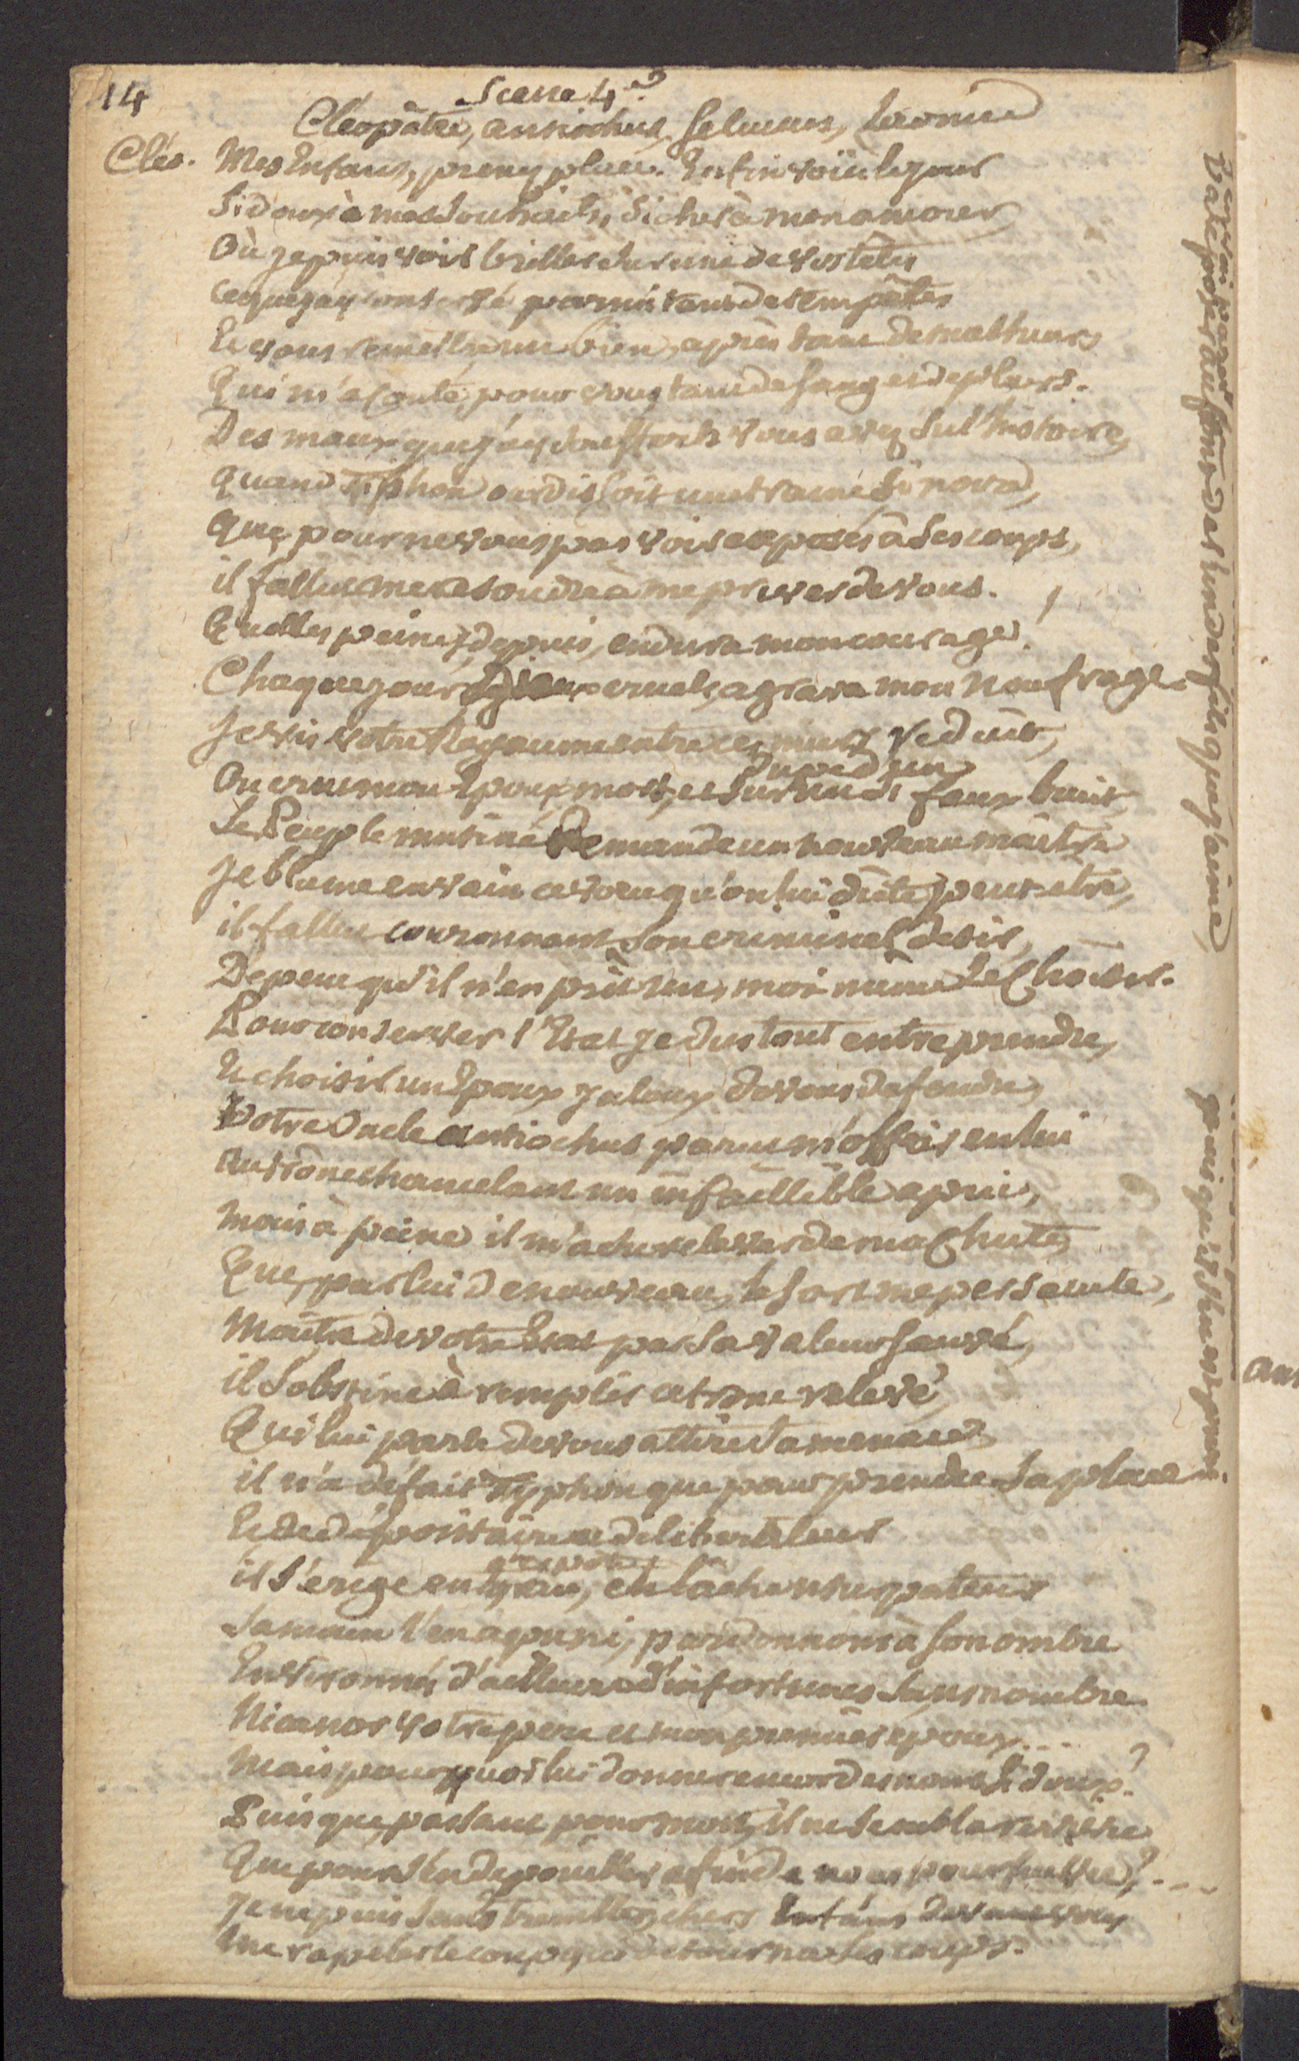 14
Scene 4e.
Cléopâtre, antiochus, Seleucus, Laonice
Cléo. Mes Enfans, prenez place. Enfin voici le jour
Si doux à mes souhaits, si cher à mon amour
Où je puis voir briller sur une de vos têtes
ce que j'ay conservé parmi tant de tempêtes
Et vous remettre un bien, après tant de malheurs
Qui m'a couté pour vous tant de sang et de pleurs.
Des maux que j'ay soufferts vous avez sul'histoire,
quand Tiphon ourdissoit une trame si noire,
Que pour ne vous pas voir exposés à ses coups,
il fallut me resoudre à me priver de vous.
Quelles peines, depuis, endura mon courage!
Chaque jour, Dieux cruels, agrava mon Naufrage.
Je vis votre Royaume entre ces murs reduit,
On crut mon Epoux mort, et sur un si faux bruit
Le Peuple mutiné Demande un nouveau maître
Je blame en vain ce voeu qu'on lui dicte peut-etre,
il fallut couronnant son criminel desir,
De peur qu'il n'en prît un, moi-même Le Choisir.
Pour conserver l'Etat je dus tout entreprendre,
Et choisir un Epoux jaloux de vous defendre,
Votre Oncle antiochus parut m'offrir en lui
au trône chancelant un infaillible apui,
mais à peine il m'acheve lever de ma Chute,
Que, par lui de nouveau, le sort me persecute,
Maître de votre Etat par sa valeur sauvé,
il s'obstine à remplir ce trone relevé,
Qui lui parle de vous attire sa menace
il n'a défait Typhon que pour prendre sa place
Et de dépositaire et de liberateur
il s'erige en tyran, en lâche usurpateur
Sa main l'en a puni, pardonnons à son ombre
Environnés d'ailleurs d'infortunes sans nombre
Nicanor votre pere et mon premier epoux...
Mais pourquoi lui donner encor des noms si doux?
Puisque, passant pour mort, il ne sembla revivre
Que pour s'en depouiller afin de nous poursuivre?...
Je ne puis sans trembler, chers Enfans devant vous
me rapeler le coup qui detourna ses coups.